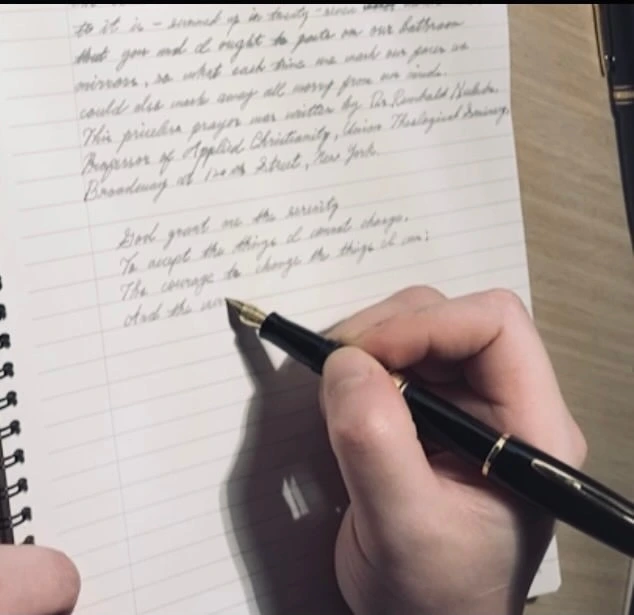 to it is - summed up in twenty-seven words
that you and I ought to paste on our bathroom
mirrors, so that each time we wash our faces we
could also wash away all worry from our minds.
This priceless prayer was written by Dr. Reinhold Niebuhr,
Professor of Applied Christianity, Union Theological Seminary,
Broadway at 120th Street, New York.
God grant me the serenity
To accept the things I cannot change.
The courage to change the things I can;
And the